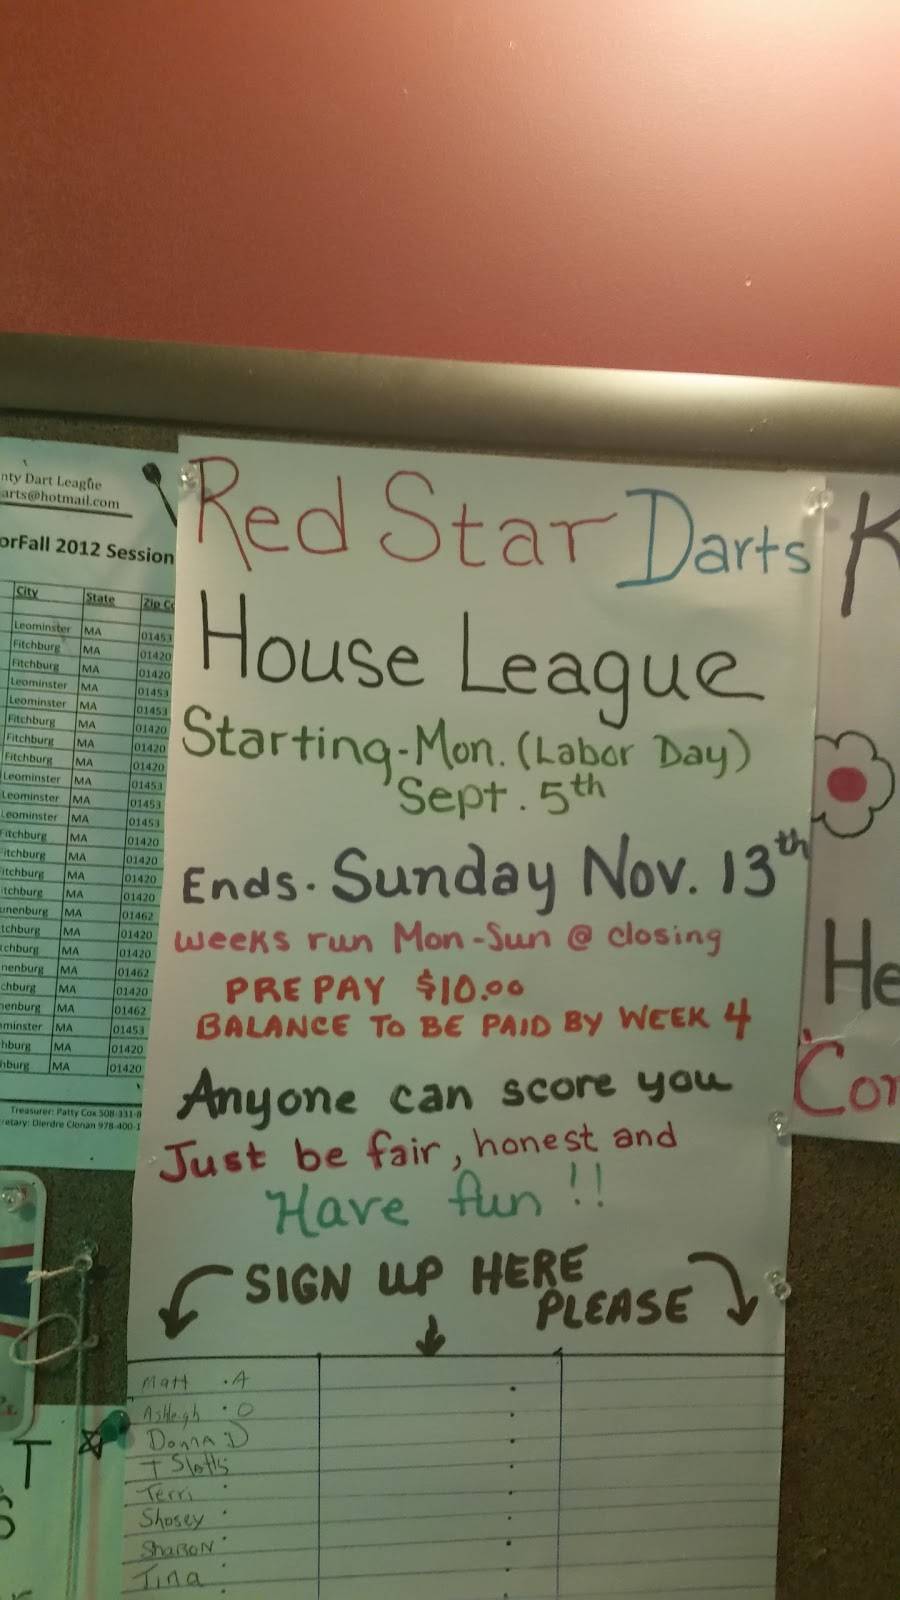 nty Dart League
arts@hotmail.com
orFall 2012 Session
City State Zip Co
Leominster MA 01453
Fitchburg MA 01420
Fitchburg MA 01420
Leominster MA 01453
Leominster MA 01453
Fitchburg MA 01420
Fitchburg MA 01420
Fitchburg MA 01420
Leominster MA 01453
Leominster MA 01453
Leominster MA 01453
Fitchburg MA 01420
itchburg MA 01420
itchburg MA 01420
itchburg MA 01420
unenburg MA 01462
tchburg MA 01420
tchburg MA 01420
nenburg MA 01462
chburg MA 01420
nenburg MA 01462
minster MA 01453
hburg MA 01420
hburg MA 01420
Treasurer: Patty Cox 508-331-8
retary: Dierdre Clonan 978-400-1
Red Star Darts
House League
Starting-Mon. (Labor Day)
Sept. 5th
Ends. Sunday Nov. 13th
weeks run Mon-Sun @ closing
PRE PAY $10.00
BALANCE TO BE PAID BY WEEK 4
Anyone can score you
Just be fair, honest and
Have fun!!
SIGN UP HERE
PLEASE
Matt . A
Ashleigh . O
Donna :D
Terri
Shosey
SHARON
Tina
K
He
Con
T